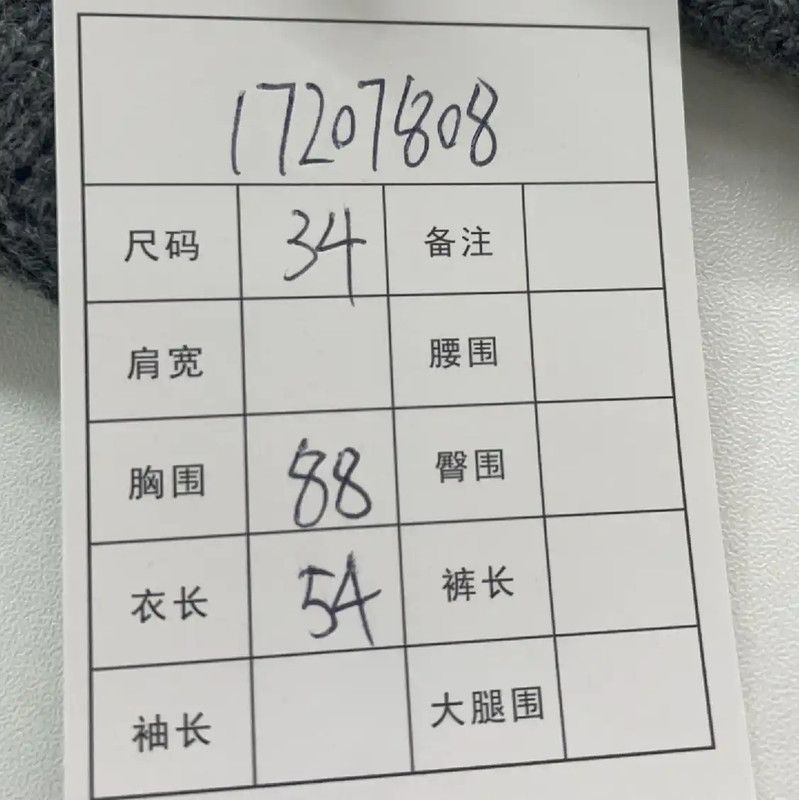 17207808
尺码 34 备注
肩宽 腰围
胸围 88 臀围
衣长 54 裤长
袖长 大腿围